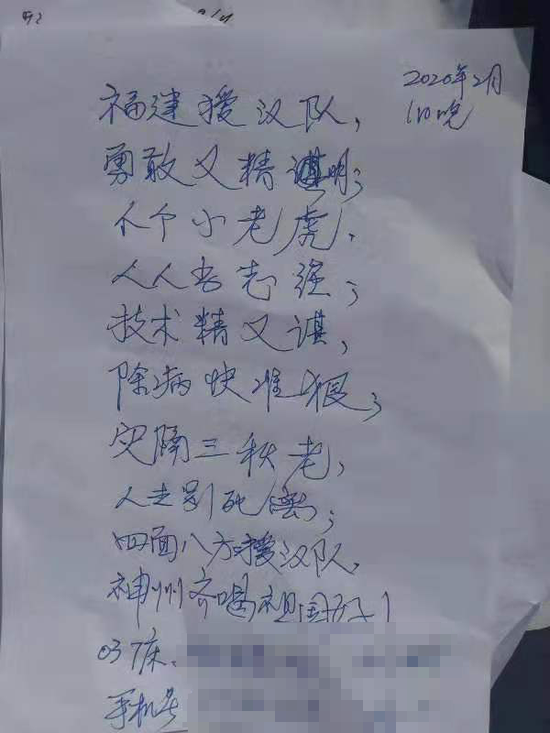 2020年2月
110晚
福建援汉队，
勇敢又精明；
个个小老虎，
人人书志强；
技术精又谌，
除病快准狠；
灾隔三秋老，
人去别死离；
四面八方援汉队，
神州齐喝祖国好！
037床
手机号